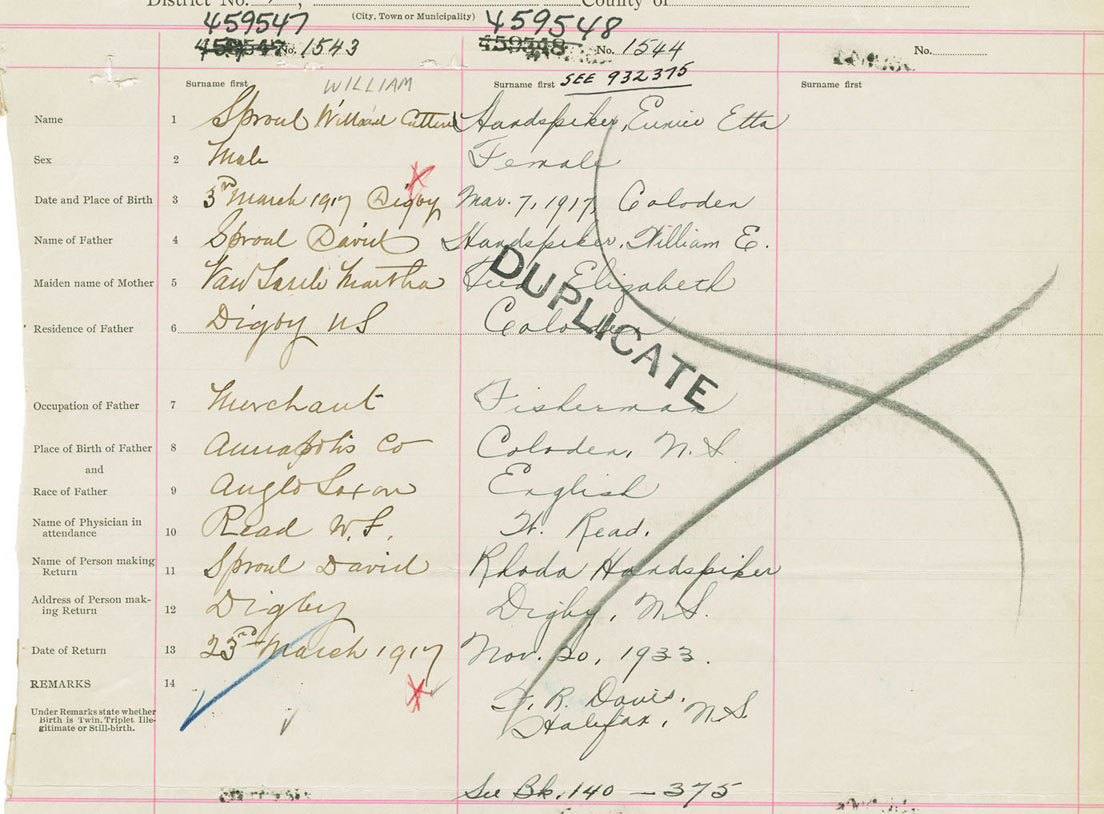 District No. County of
(City, Town or Municipality)
459547 459548
No. 1543 No. 1544 No.
SEE 932375
Surname first WILLIAM Surname first Surname first
Name 1 Sproul William Handspiker, Eunice Etta
Sex 2 Male Female
Date and Place of Birth 3 3rd March 1917 Digby Mar. 7, 1917, Coloden
Name of Father 4 Sproul David Handspiker, William E.
Maiden name of Mother 5 Martha Elizabeth
Residence of Father 6 Digby NS Coloden
DUPLICATE
Occupation of Father 7 Merchant Fisherman
Place of Birth of Father 8 Annapolis Co Coloden, N.S.
and
Race of Father 9 Anglo Saxon English
Name of Physician in
attendance 10 Read W.S. Read.
Name of Person making
Return 11 Sproul David Rhoda Handspiker
Address of Person mak-
ing Return 12 Digby Digby, N.S.
Date of Return 13 23rd March 1917 Nov. 20, 1933.
REMARKS 14
Under Remarks state whether
Birth is Twin, Triplet, Ille-
gitimate or Still-birth.
R. Davis,
Halifax, N.S.
See Bk. 140 — 375